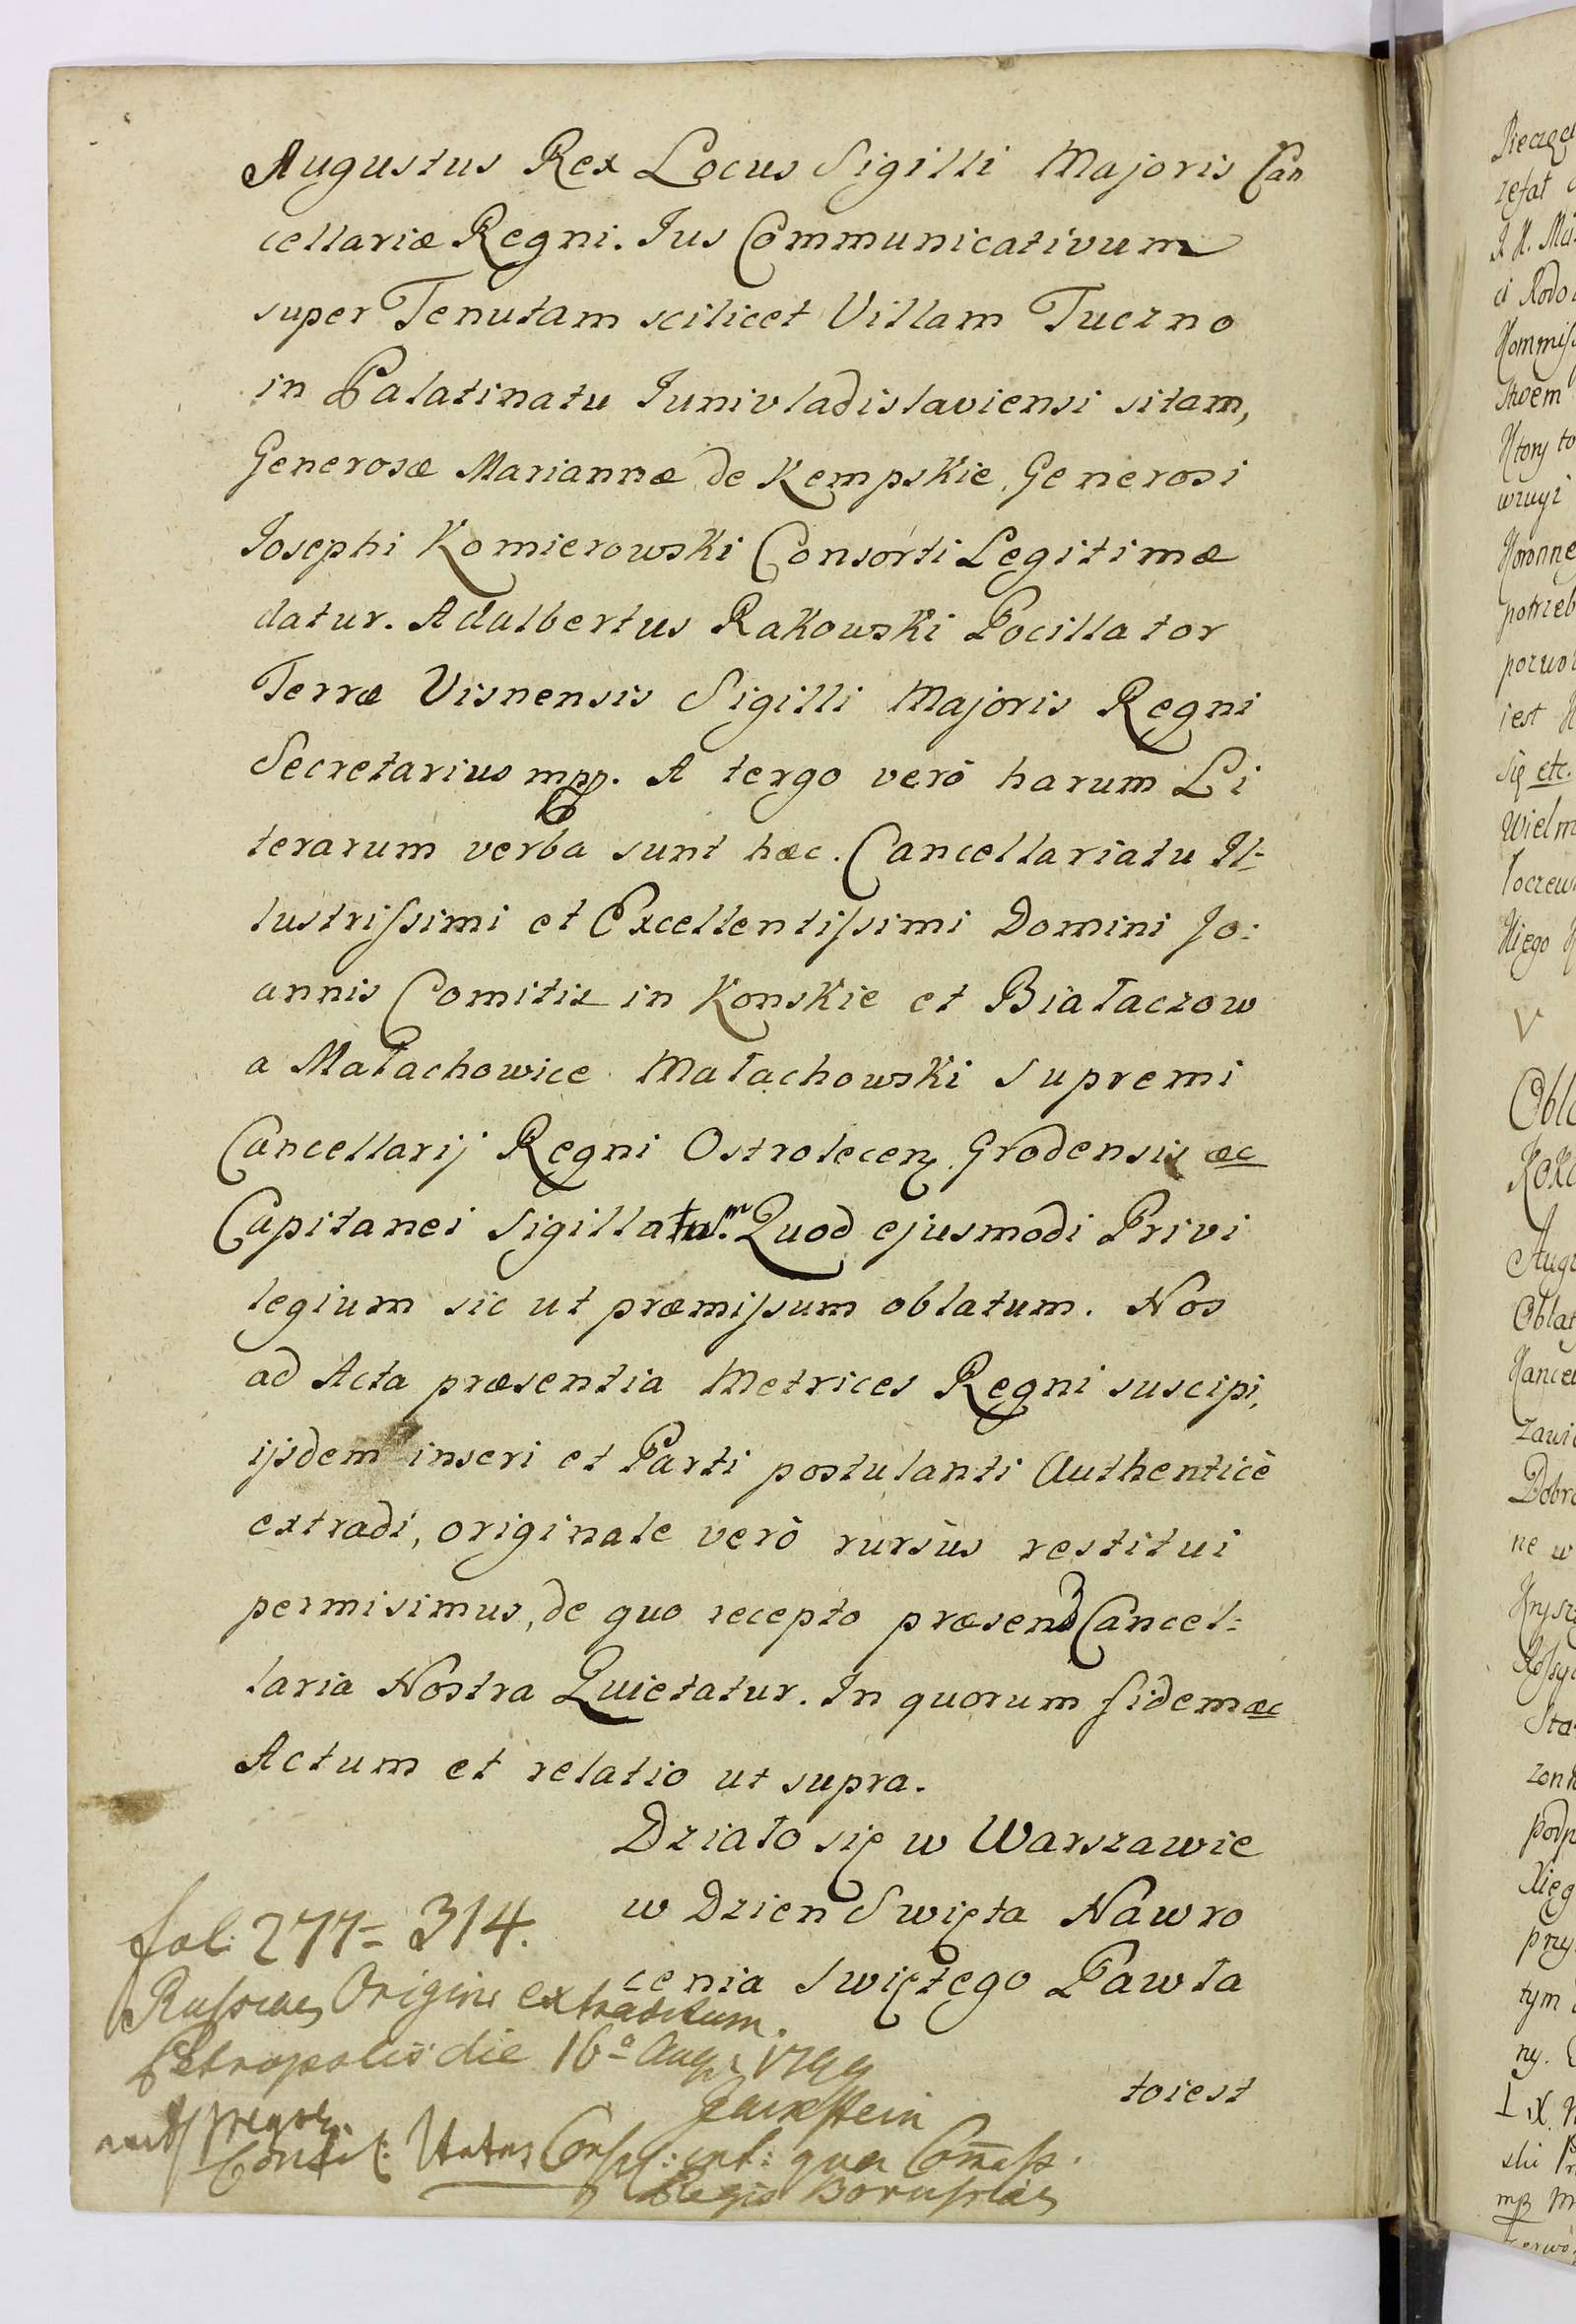 Augustus Rex Locus Sigilli Majoris Can
cellariæ Regni. Ius Communicativum
super Tenutam scilicet Villam Tuczno
in Palatinatu Iunivladislaviensi sitam,
Generosæ Mariannæ de Kempskie Generosi
Iosephi Komierowski Consorti Legitimæ
datur. Adalbertus Rakowski Pocillator
Terræ Visnensis Sigilli Majoris Regni
Secretarius mpp. A tergo verò harum Li
terarum verba sunt hæc. Cancellariatu Il=
lustriſsimi et Excellentiſsimi Domini Jo:
annis Comitis in Konskie et Białaczow
a Małachowice Małachowski Supremi
Cancellarij Regni Ostrolecen Grodensis æc
Capitanei Sigillatum. Quod ejusmodi Privi
legium sic ut præmiſsum oblatum. Nos
ad Acta præsentia Metrices Regni suscipi,
ijsdem inseri et Parti postulanti Authenticè
extradi, originale verò rursùs restitui
permisimus, de quo recepto præsens Cancel:
laria Nostra Quietatur. In quorum fidem æc
Actum et relatio ut supra.
Działo się w Warszawie
w Dzien Swięta Nawro
cenia Swiętego Pawła
toiest
fol. 277= 314.
Origine extraditum.
Petropolis die 16º Aug: 1799
Regio Boruſsiæ
Pieczęc
zefat
Kommiſs
Ktory to
wzuyi
potrzeb
pozwol
iest
się etc.
Wielm
Toczew
V
Obla
Augu
Oblat
Kance
zawi
Dobr
ne w
Sta
podp
przy
tym
ny.